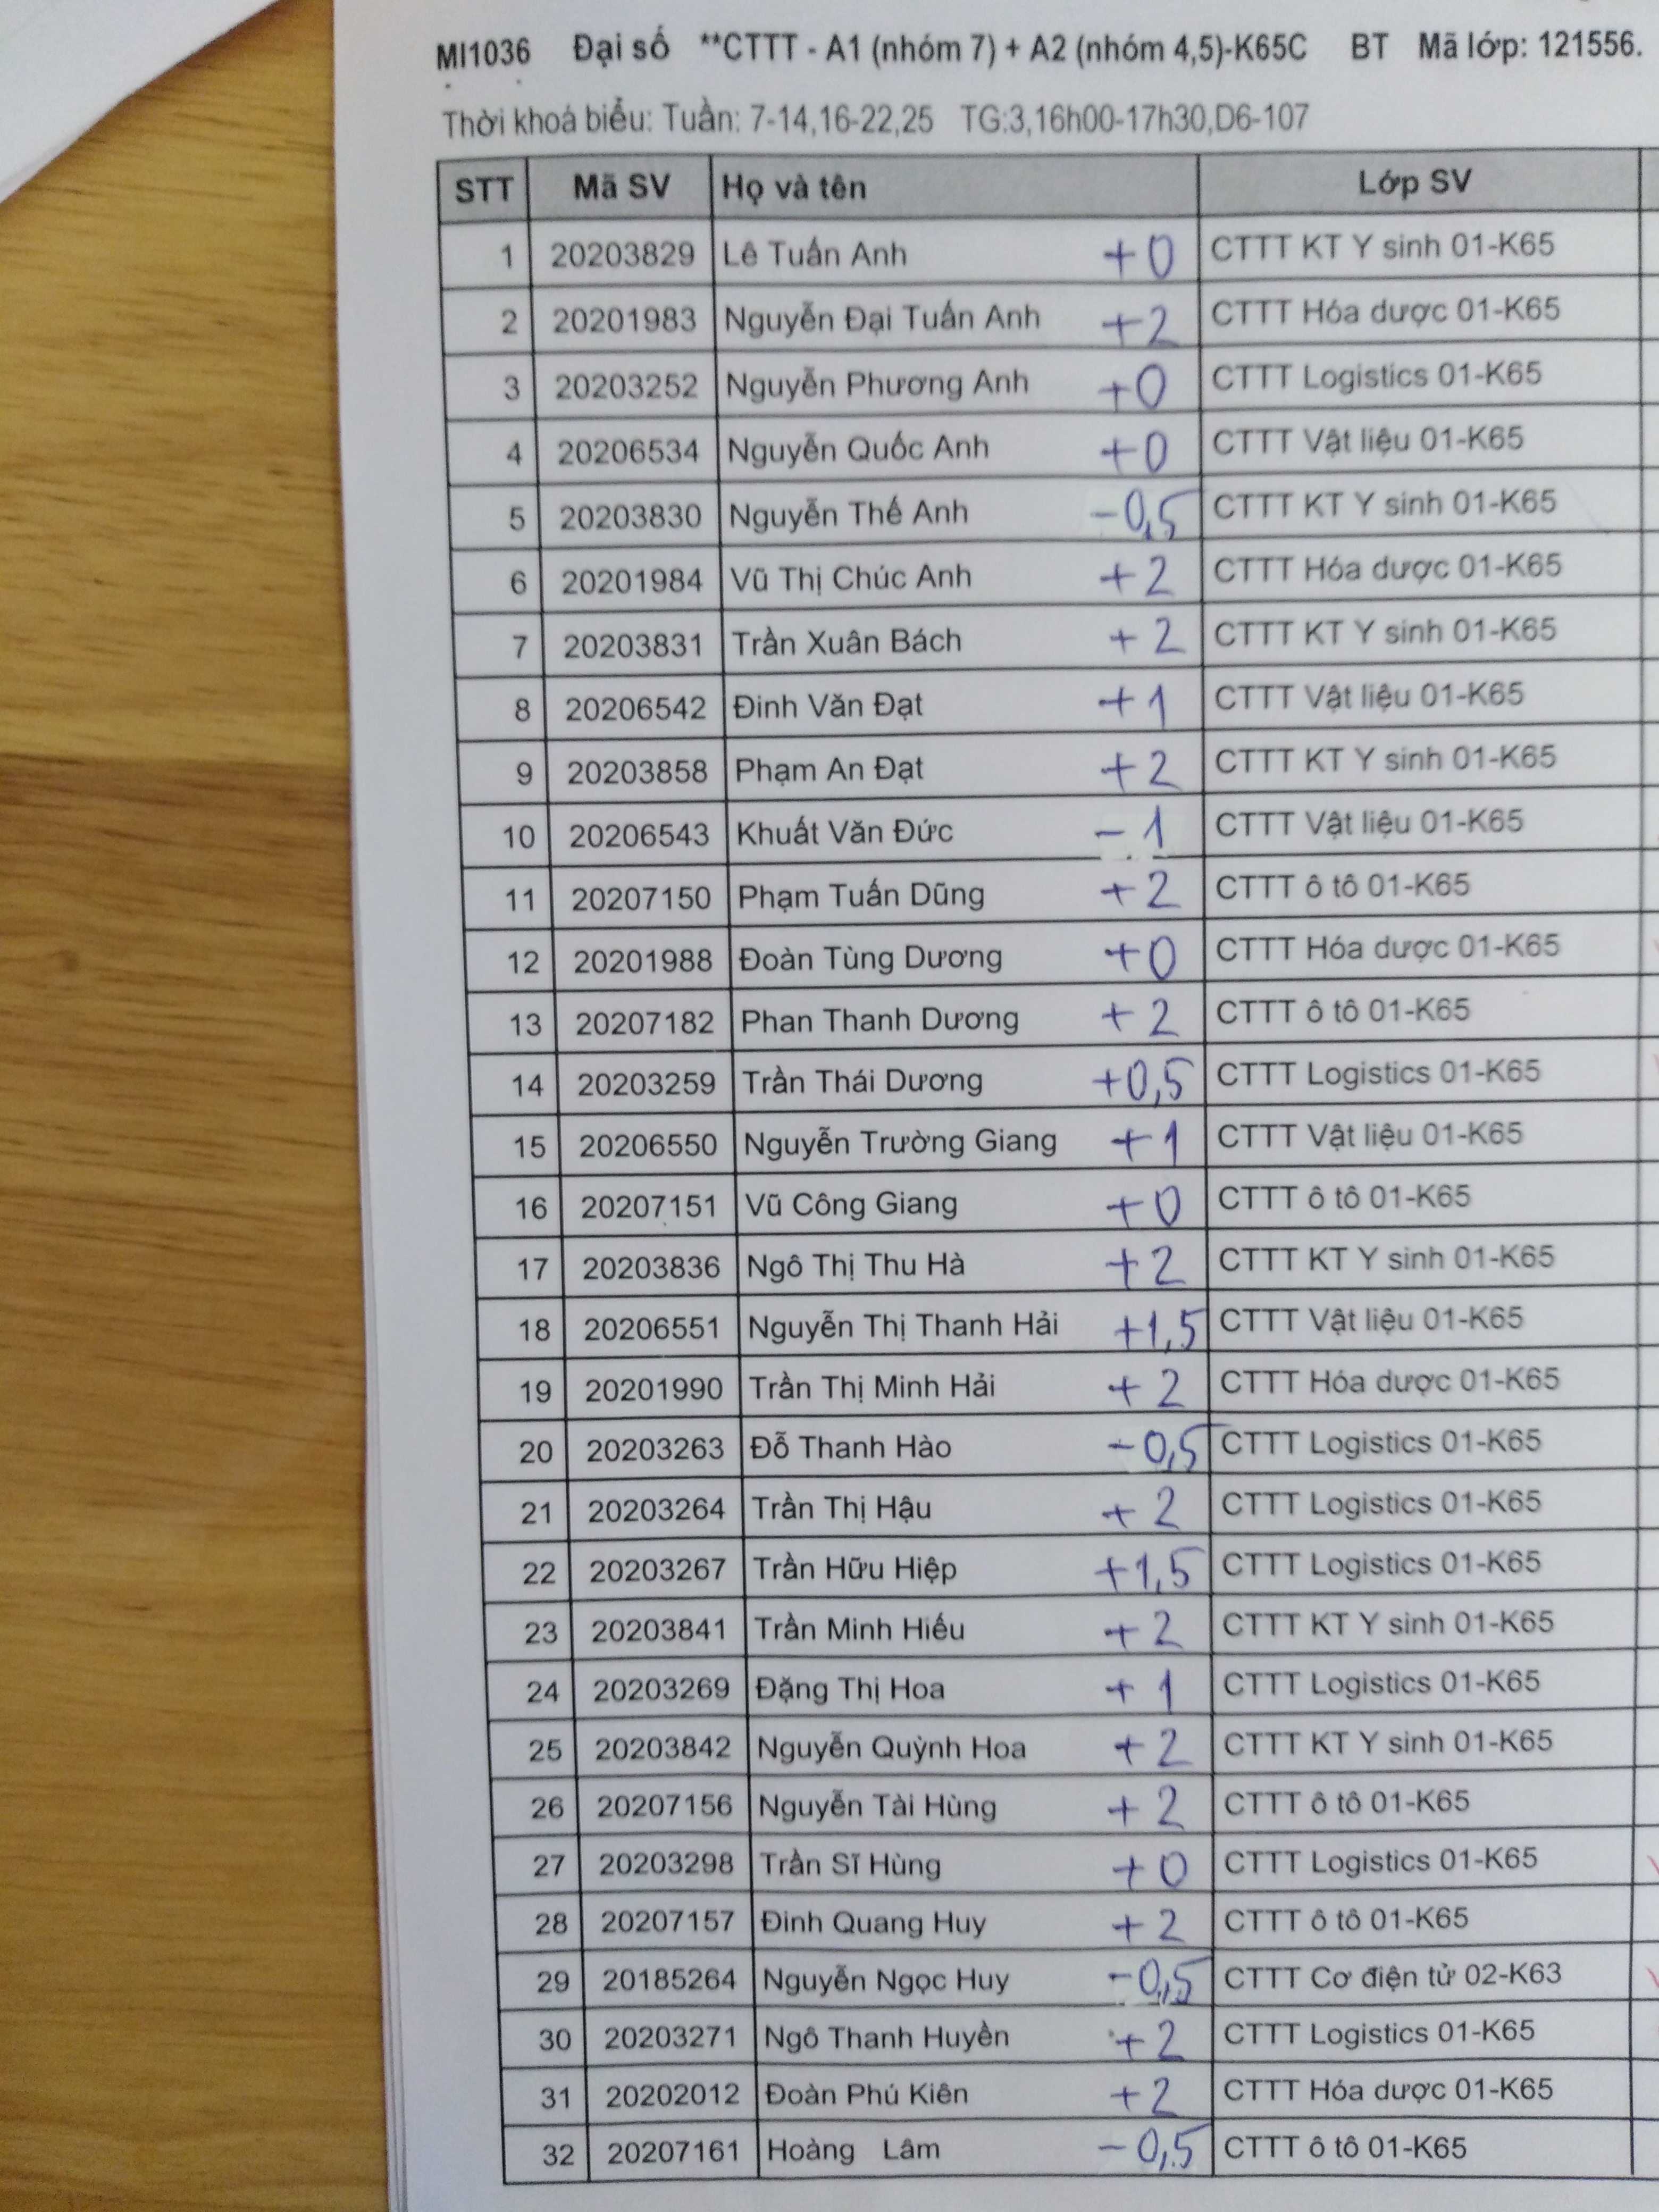 MI1036 Đại số **CTTT - A1 (nhóm 7) + A2 (nhóm 4,5)-K65C BT Mã lớp: 121556.
Thời khoá biểu: Tuần: 7-14,16-22,25 TG:3,16h00-17h30,D6-107
STT Mã SV Họ và tên Lớp SV
1 20203829 Lê Tuấn Anh +0 CTTT KT Y sinh 01-K65
2 20201983 Nguyễn Đại Tuấn Anh +2 CTTT Hóa dược 01-K65
3 20203252 Nguyễn Phương Anh +0 CTTT Logistics 01-K65
4 20206534 Nguyễn Quốc Anh +0 CTTT Vật liệu 01-K65
5 20203830 Nguyễn Thế Anh -0,5 CTTT KT Y sinh 01-K65
6 20201984 Vũ Thị Chúc Anh +2 CTTT Hóa dược 01-K65
7 20203831 Trần Xuân Bách +2 CTTT KT Y sinh 01-K65
8 20206542 Đinh Văn Đạt +1 CTTT Vật liệu 01-K65
9 20203858 Phạm An Đạt +2 CTTT KT Y sinh 01-K65
10 20206543 Khuất Văn Đức -1 CTTT Vật liệu 01-K65
11 20207150 Phạm Tuấn Dũng +2 CTTT ô tô 01-K65
12 20201988 Đoàn Tùng Dương +0 CTTT Hóa dược 01-K65
13 20207182 Phan Thanh Dương +2 CTTT ô tô 01-K65
14 20203259 Trần Thái Dương +0,5 CTTT Logistics 01-K65
15 20206550 Nguyễn Trường Giang +1 CTTT Vật liệu 01-K65
16 20207151 Vũ Công Giang +0 CTTT ô tô 01-K65
17 20203836 Ngô Thị Thu Hà +2 CTTT KT Y sinh 01-K65
18 20206551 Nguyễn Thị Thanh Hải +1,5 CTTT Vật liệu 01-K65
19 20201990 Trần Thị Minh Hải +2 CTTT Hóa dược 01-K65
20 20203263 Đỗ Thanh Hào -0,5 CTTT Logistics 01-K65
21 20203264 Trần Thị Hậu +2 CTTT Logistics 01-K65
22 20203267 Trần Hữu Hiệp +1,5 CTTT Logistics 01-K65
23 20203841 Trần Minh Hiếu +2 CTTT KT Y sinh 01-K65
24 20203269 Đặng Thị Hoa +1 CTTT Logistics 01-K65
25 20203842 Nguyễn Quỳnh Hoa +2 CTTT KT Y sinh 01-K65
26 20207156 Nguyễn Tài Hùng +2 CTTT ô tô 01-K65
27 20203298 Trần Sĩ Hùng +0 CTTT Logistics 01-K65
28 20207157 Đinh Quang Huy +2 CTTT ô tô 01-K65
29 20185264 Nguyễn Ngọc Huy -0,5 CTTT Cơ điện tử 02-K63
30 20203271 Ngô Thanh Huyền +2 CTTT Logistics 01-K65
31 20202012 Đoàn Phú Kiên +2 CTTT Hóa dược 01-K65
32 20207161 Hoàng Lâm -0,5 CTTT ô tô 01-K65